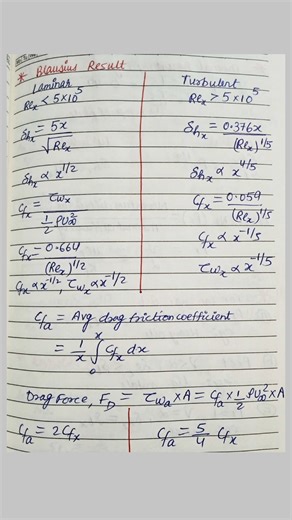 * Blausius Result
Laminar
Re_x < 5×10^5
δh_x = 5x / √Re_x
δh_x ∝ x^1/2
Cf_x = τw_x / (1/2 ρU∞^2)
Cf_x = 0.664 / (Re_x)^1/2
Cf_x ∝ x^-1/2, τw_x ∝ x^-1/2
Turbulent
Re_x > 5×10^5
δh_x = 0.376x / (Re_x)^1/5
δh_x ∝ x^4/5
Cf_x = 0.059 / (Re_x)^1/5
Cf_x ∝ x^-1/5
τw_x ∝ x^-1/5
Cf_a = Avg drag friction coefficient
= 1/x ∫_0^x Cf_x dx
Drag Force, F_D = τw_a × A = Cf_a × 1/2 ρU∞^2 × A
Cf_a = 2Cf_x
Cf_a = 5/4 Cf_x